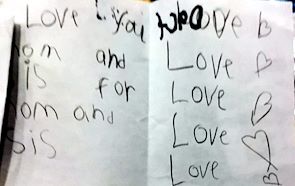 Love you
mom and
is for
mom and
sis
Love
Love
Love
Love
Love